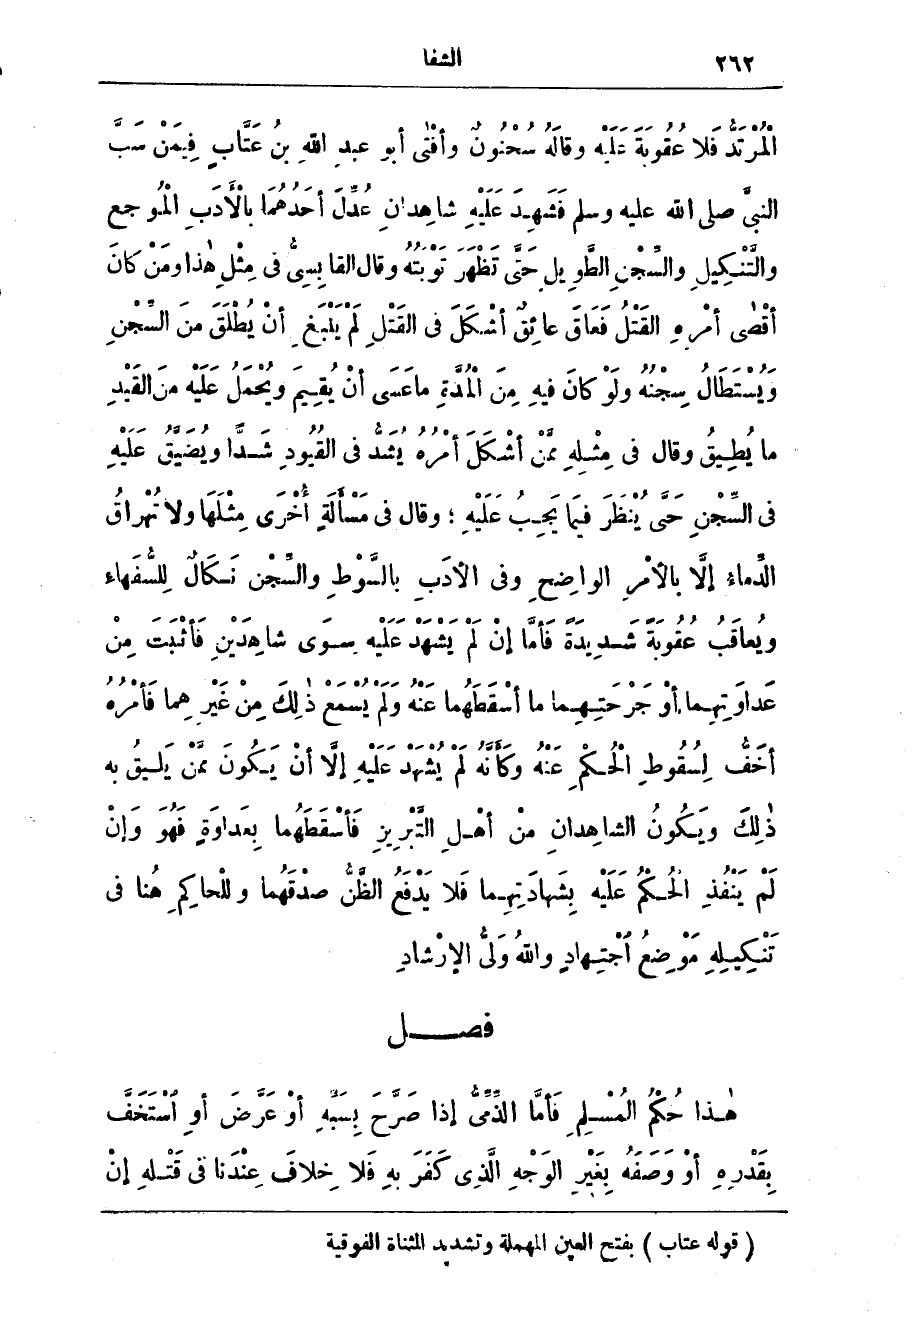 ٢٦٢
الشفا
الْمُرْتَدُّ فَلا عُقُوبَةَ عَلَيْهِ وقالَهُ سُحْنُونٌ وأفْتَى أبو عبدِ اللهِ بنُ عَتَّابٍ فِيمَنْ سَبَّ
النبيَّ صلى الله عليه وسلم فَشَهِدَ عَلَيْهِ شاهِدانِ عُدِّلَ أحَدُهُمَا بِالْأَدَبِ الْمُوجِعِ
والتَّنْكِيلِ والسِّجْنِ الطَّوِيلِ حَتَّى تَظْهَرَ تَوْبَتُهُ وقال القابِسِيُّ فى مِثْلِ هٰذا ومَنْ كانَ
أقْصٰى أمْرِهِ القَتْلُ فَعَاقَ عائِقٌ أشْكَلَ فى القَتْلِ لَمْ يَنْبَغِ أنْ يُطْلَقَ مِنَ السِّجْنِ
ويُسْتَطَالُ سِجْنُهُ ولَوْ كانَ فيهِ مِنَ الْمُدَّةِ ماعَسَى أنْ يُقِيمَ ويُحْمَلُ عَلَيْهِ مِنَ القَيْدِ
ما يُطِيقُ وقال فى مِثْلِهِ مِمَّنْ أشْكَلَ أمْرُهُ يُشَدُّ فى القُيُودِ شَدًّا ويُضَيَّقُ عَلَيْهِ
فى السِّجْنِ حَتَّى يُنْظَرَ فيما يَجِبُ عَلَيْهِ ؛ وقال فى مَسْأَلَةٍ أُخْرَى مِثْلَهَا ولا تُهْراقُ
الدِّماءُ إلَّا بالأمْرِ الواضِحِ وفى الأدَبِ بالسَّوْطِ والسِّجْنِ نَكالٌ لِلسُّفَهاءِ
ويُعاقَبُ عُقُوبَةً شَدِيدَةً فَأمَّا إنْ لَمْ يَشْهَدْ عَلَيْهِ سِوَى شاهِدَيْنِ فَأثْبَتَ مِنْ
عَداوَتِهِما أوْ جَرْحَتِهِما ما أسْقَطَهُما عَنْهُ ولَمْ يُسْمَعْ ذٰلِكَ مِنْ غَيْرِهِما فَأمْرُهُ
أخَفُّ لِسُقُوطِ الْحُكْمِ عَنْهُ وكَأنَّهُ لَمْ يُشْهَدْ عَلَيْهِ إلَّا أنْ يَكُونَ مِمَّنْ يَلِيقُ بِهِ
ذٰلِكَ ويَكُونُ الشاهِدانِ مِنْ أهْلِ التَّبْرِيزِ فَأسْقَطَهُما بِعَداوَةٍ فَهُوَ وَإنْ
لَمْ يَنْفُذِ الْحُكْمُ عَلَيْهِ بِشَهادَتِهِما فَلا يَدْفَعُ الظَّنُّ صِدْقَهُما ولِلْحاكِمِ هُنا فى
تَنْكِيلِهِ مَوْضِعُ اُجْتِهادٍ واللهُ وَلِيُّ الإرْشادِ
فصـــل
هٰذا حُكْمُ المُسْلِمِ فَأمَّا الذِّمِّىُّ إذا صَرَّحَ بِسَبِّهِ أوْ عَرَّضَ أوِ اُسْتَخَفَّ
بِقَدْرِهِ أوْ وَصَفَهُ بِغَيْرِ الوَجْهِ الَّذِى كَفَرَ بِهِ فَلا خِلافَ عِنْدَنا فى قَتْلِهِ إنْ
( قوله عتاب ) بفتح العين المهملة وتشديد المثناة الفوقية